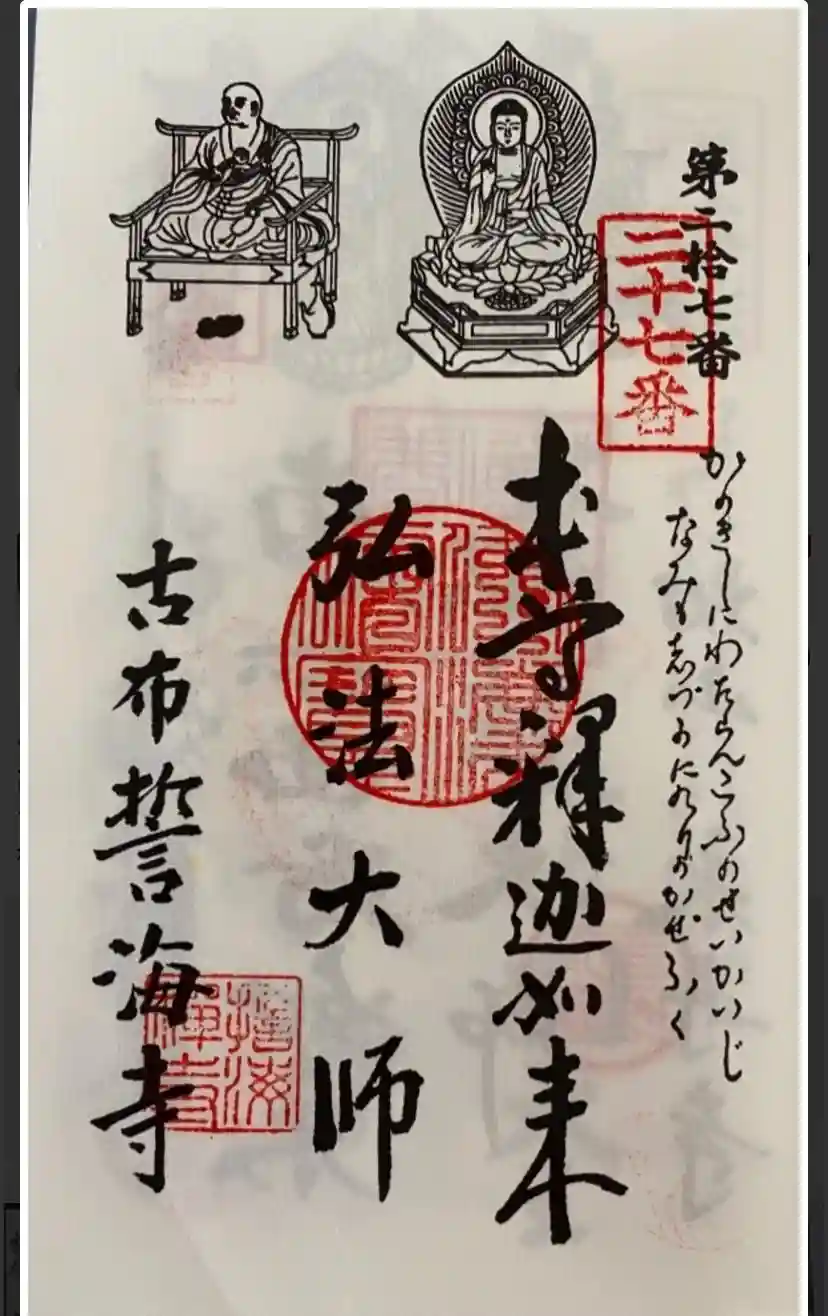 第二拾七番
二十七番
かのきしにわたらんこふのせいかいじ
なみも志づかにのりのかぜふく
本尊釋迦如来
弘法大師
古布誓海寺
誓海
禪寺